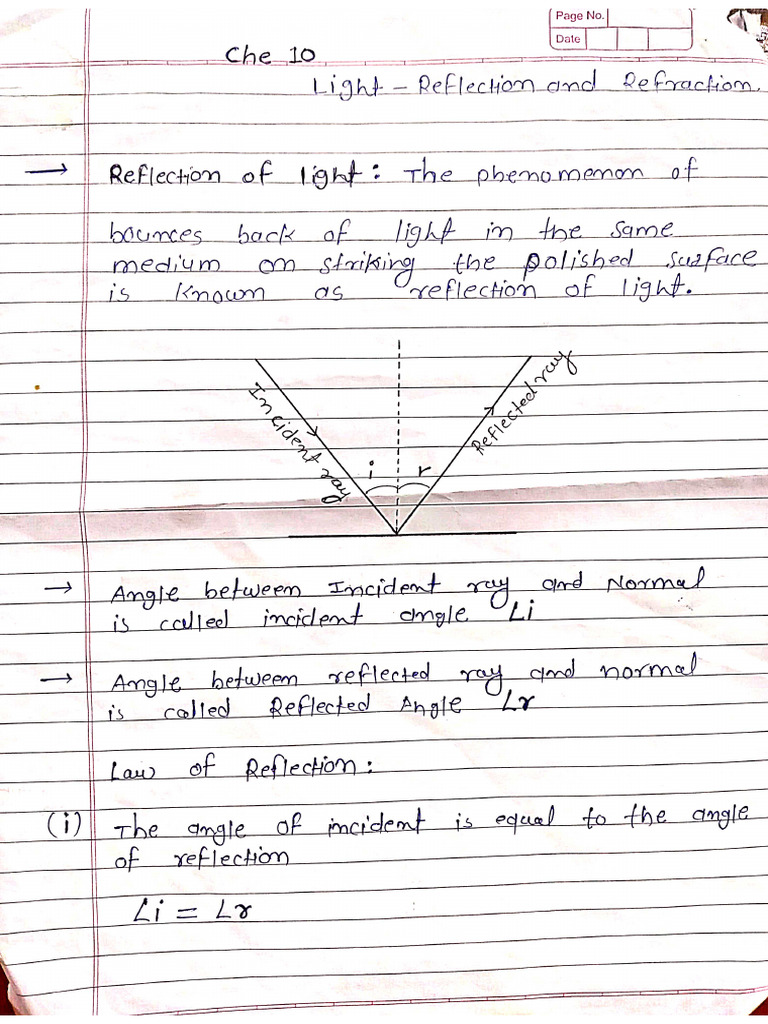 Page No.
Date
Che 10
Light - Reflection and Refraction.
→ Reflection of light: The phenomenon of
bounces back of light in the same
medium on striking the polished surface
is known as reflection of light.
Incident ray
Reflected ray
i r
→ Angle between Incident ray and Normal
is called incident angle ∠i
→ Angle between reflected ray and normal
is called Reflected Angle ∠r
Law of Reflection:
(i) The angle of incident is equal to the angle
of reflection
∠i = ∠r